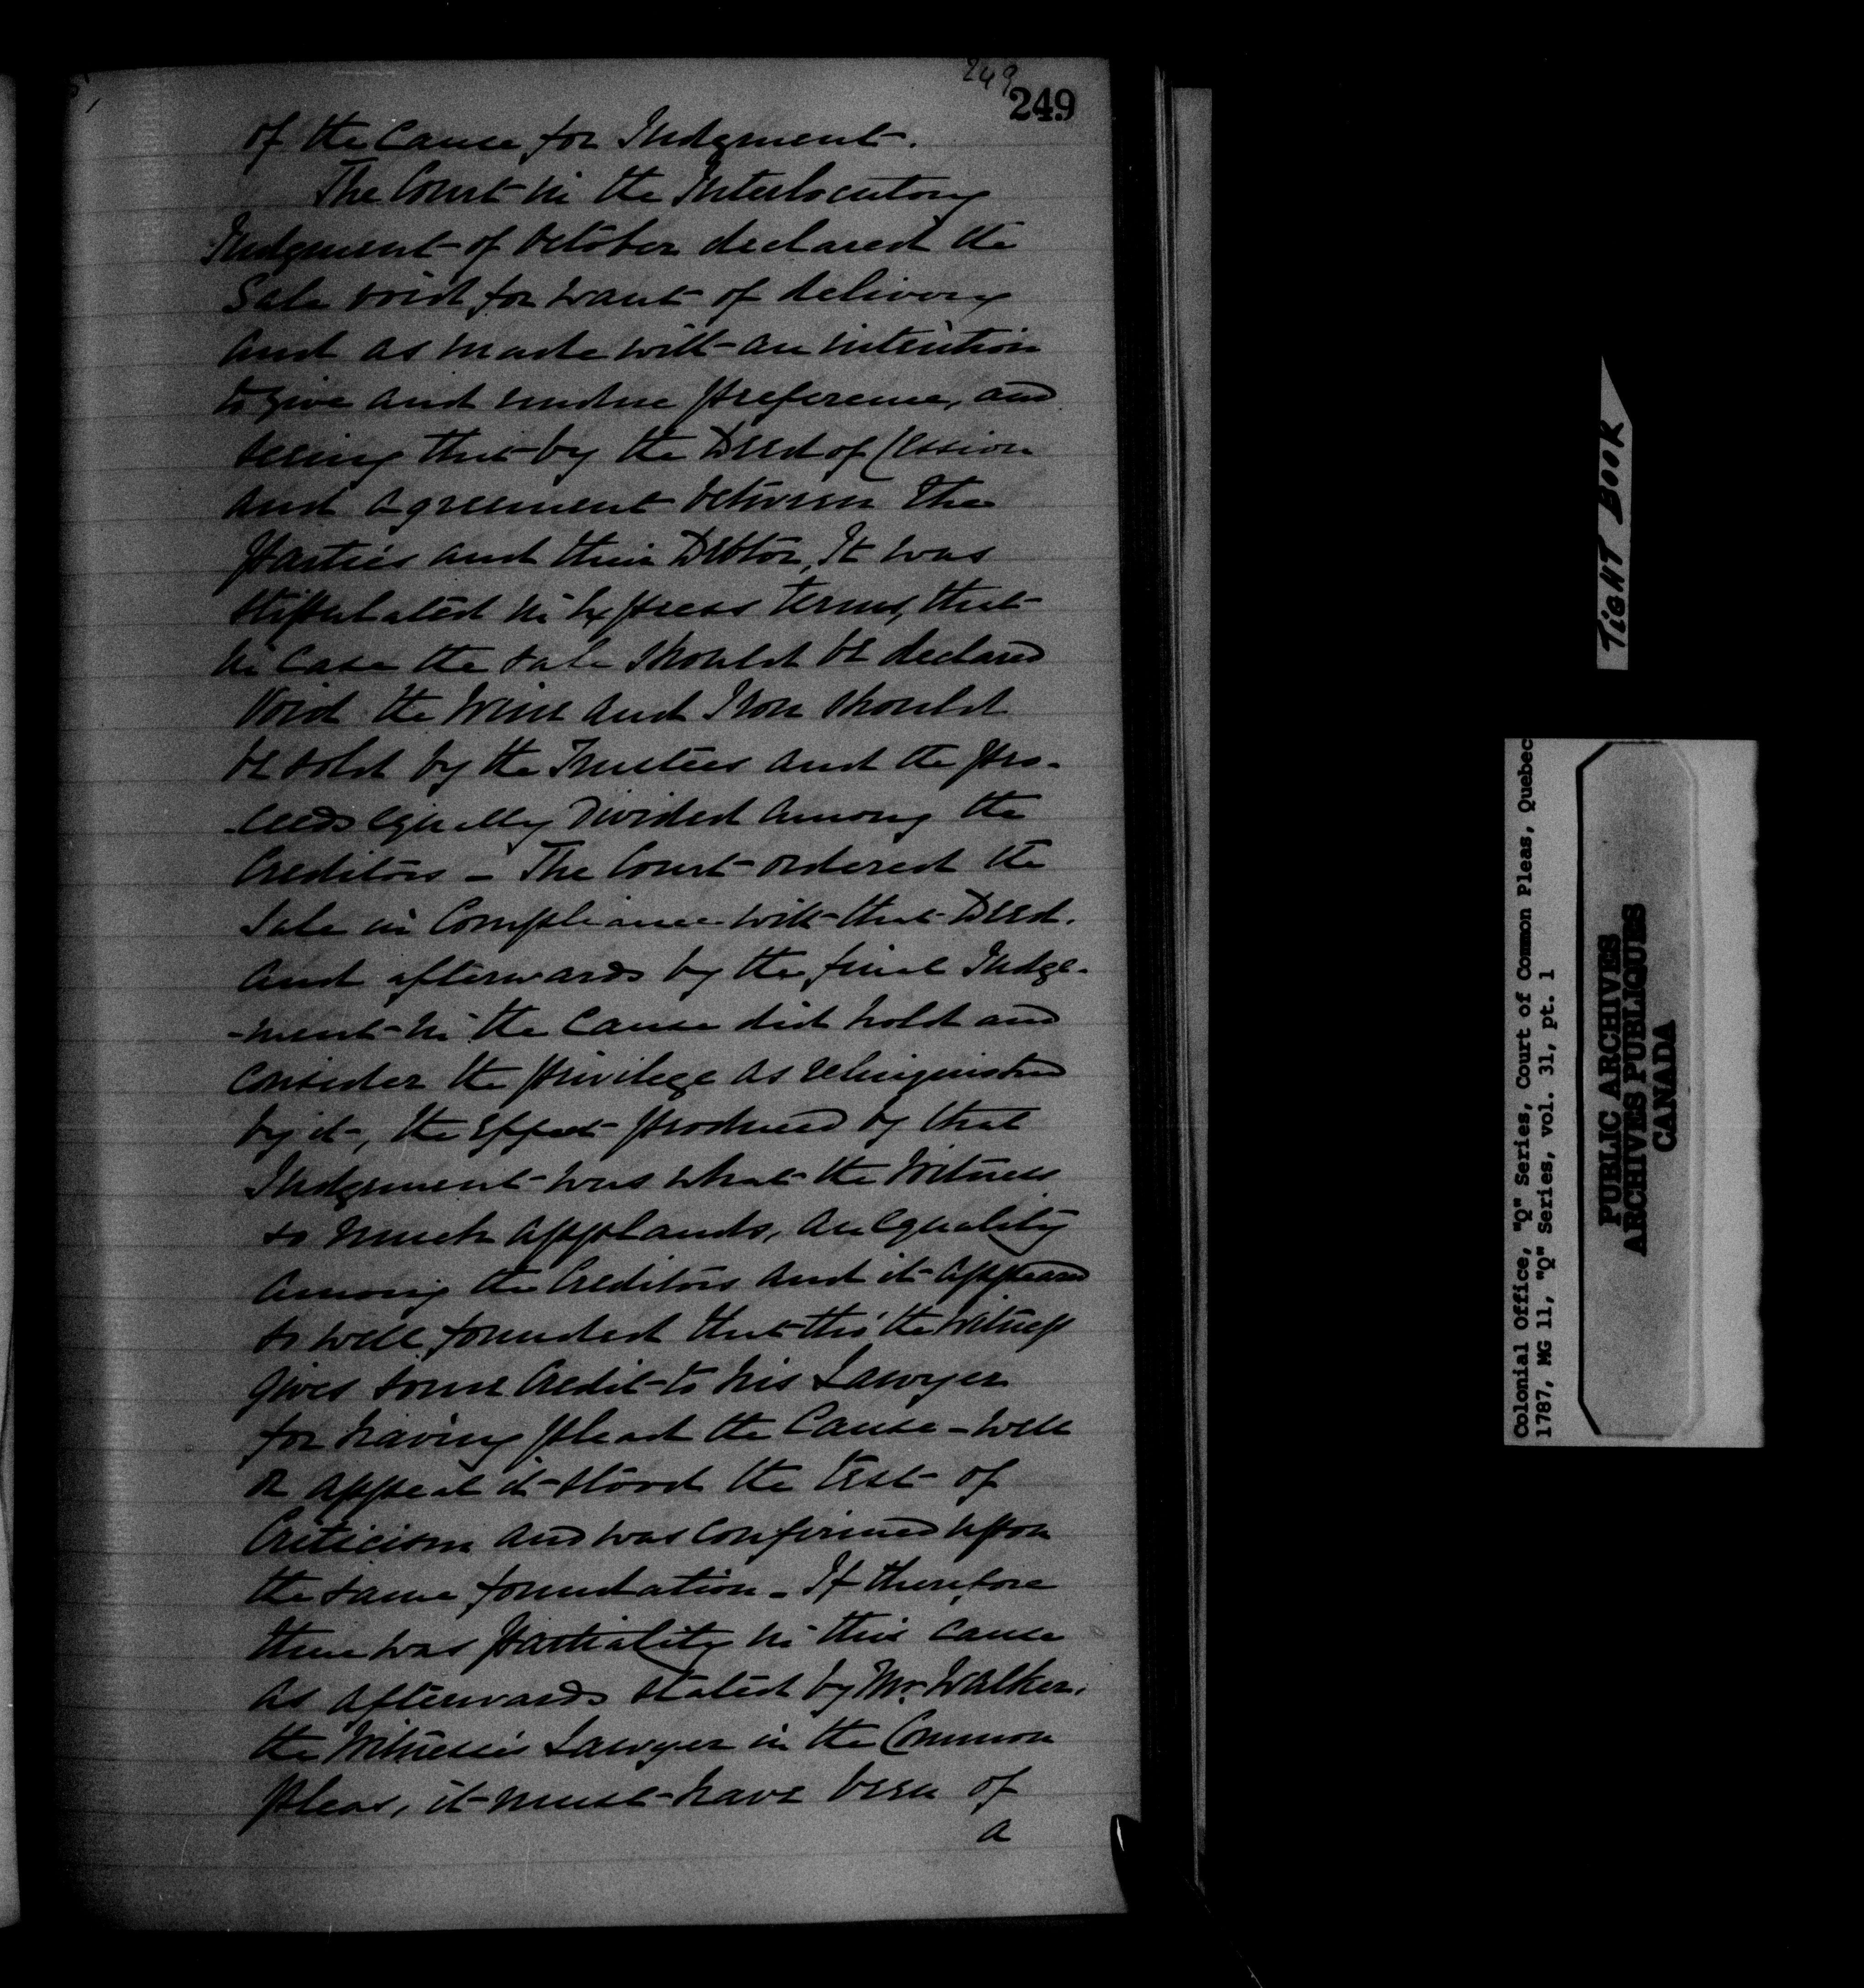 249
249
of the Cause for Judgment.
The Court in the Interlocutory
Judgment of October declared the
Sale void for want of delivery
and as made with an intention
to give and undue preference, and
seeing that by the Deed of Cession
and agreement between the
parties and their Debtor, It was
stipulated in Express terms, that
in Case the sale should be declared
Void the Wine and Iron should
be sold by the Trustees and the pro-
-ceeds equally Divided among the
Creditors - The Court ordered the
Sale in Compliance with that Deed.
And afterwards by the final Judge-
-ment in the Cause did hold and
Consider the privilege as relinquished
by it, the Effect produced by that
Judgement was what the Witness
so much applauds, an Equality
among the Creditors and it appeared
so well founded that tho' the Witness
gives some Credit to his Lawyer
for having plead the Cause - well
on appeal it stood the test of
Criticism and was Confirmed upon
the same foundation - If therefore
there was partiality in this Cause
as afterwards stated by Mr. Walker,
the Witness's Lawyer in the Common
pleas, it must have been of
a
TIGHT BOOK
Colonial Office, "Q" Series, Court of Common Pleas, Quebec
1787, MG 11, "Q" Series, vol. 31, pt. 1
PUBLIC ARCHIVES
ARCHIVES PUBLIQUES
CANADA